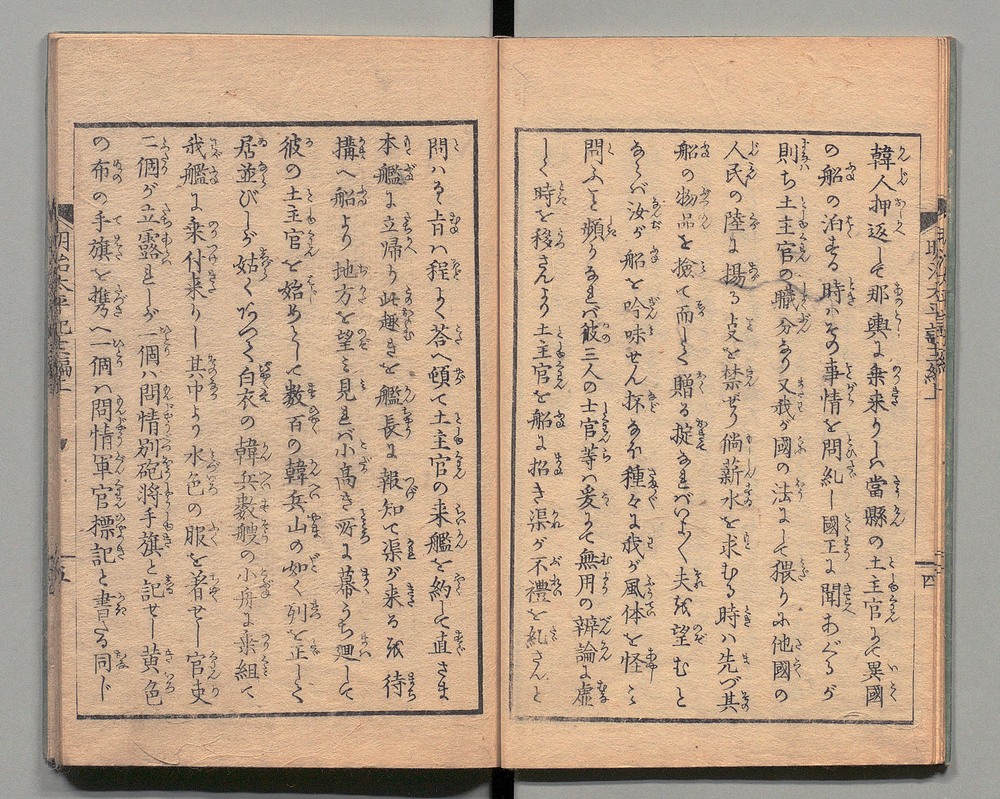 韓人押返して那輿に乗来りしハ當縣の土主官にて異國
の船の泊する時ハその事情を問糺し國王に聞あぐるが
則ち土主官の職分なり又我が國の法にして猥りに他國の
人民の陸に揚る支を禁ぜり倘薪水を求むる時ハ先づ其
船の物品を撿て而して贈る掟あれバいよ〱夫を望むと
あらバ汝が船を吟味せん抔なほ種々に我が風体を怪み
問ふと頻りなれバ彼三人の士官等ハ爰にて無用の辨論に虚
しく時を移さんより土主官を船に招き渠が不禮を糺さんと
問ハるゝ旨ハ程よく荅へ頓て土主官の来艦を約して直さま
本艦に立帰り此趣きを艦長に報知て渠が来るを待
搆へ船より地方を望み見れバ小高き所に幕うち廻して
彼の土主官を始めとして数百の韓兵山の如く列を正して
居並びしが姑くありて白衣の韓兵数艘の小舟に乗組て
我艦に乗付来りし其中より水色の服を着せし官吏
二個が立露れしが一個ハ問情別砲将手旗と記せし黄色
の布の手旗を携へ一個ハ問情軍官標記と書たる同じ
明治太平記十二編上
四
明治太平記十二編上
五